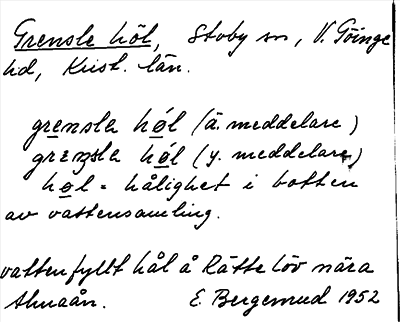 Grensle höl, Stoby sn, V. Göinge
hd, Krist. län.
grensla høl (ä. meddelare)
grensla høl (y. meddelare)
høl = hålighet i botten
av vattensamling.
vattenfyllt hål å Rätte löv nära
Almaån. E. Bergemud 1952